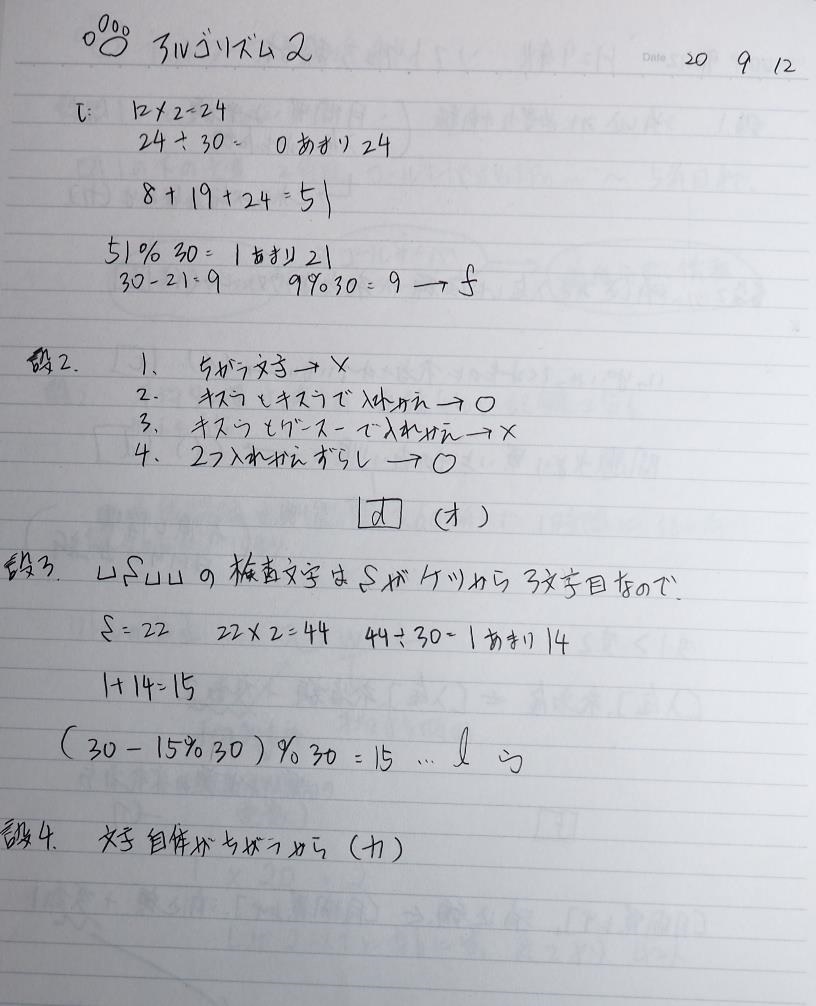 アルゴリズム2
Date 20 9 12
i: 12×2=24
24÷30= 0あまり24
8+19+24=51
51%30= 1あまり21
30-21=9 9%30=9→f
設2. 1. ちがう文字→×
2. キスウとキスウで入れかえ→○
3. キスウとグースーで入れかえ→×
4. 2つ入れかえずらし→○
d (オ)
設3. ␣s␣␣の検査文字はsがケツから3文字目なので、
s=22 22×2=44 44÷30=1あまり14
1+14=15
(30-15%30)%30=15 … l
設4. 文字自体がちがうから(カ)